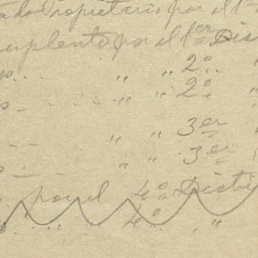 propietario por el 1er
suplente por el 1er Dist
" " 2º "
" " 2º "
" " 3er
" " 3er
por el 4º Distri
" 4º "